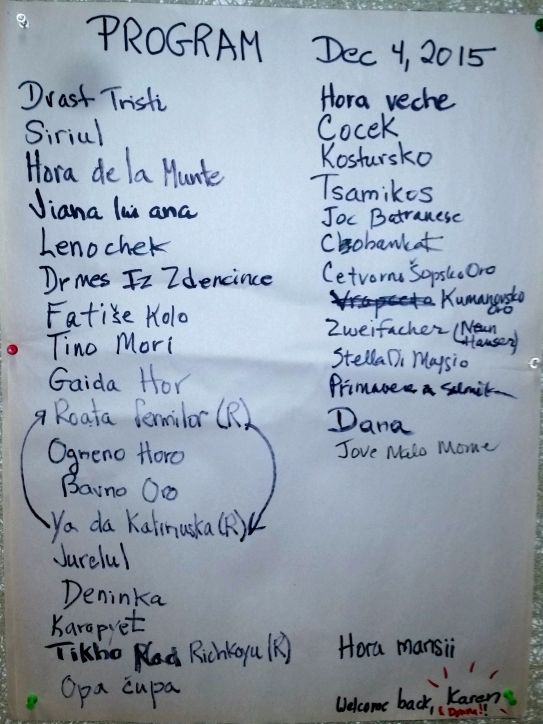 PROGRAM
Dec 4, 2015
Drast Tristi
Siriul
Hora de la Munte
Jiana lui ana
Lenochek
Drmes Iz Zdencince
Fatiše Kolo
Tino Mori
Gaida Hor
Roata femeilor (R)
Ogneno Horo
Bavno Oro
Ya da Kalinuska (R)
Jurelul
Deninka
Karapyet
Tikho Nad Richkoyu (R)
Opa čupa
Hora veche
Cocek
Kostursko
Tsamikos
Joc Batranesc
Chobankat
Cetvorno Šopsko Oro
Vrapceto Kumanovsko
oro
Zweifacher (Neun
Hauser)
Stella Di Maggio
Primavera a
Dana
Jove Malo Mome
Hora mansii
Welcome back, Karen
& Dana!!